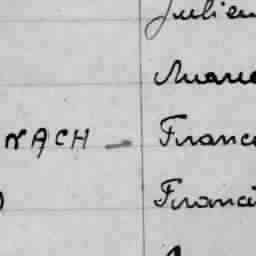 Julien
Marie
NACH - Franc
Franci